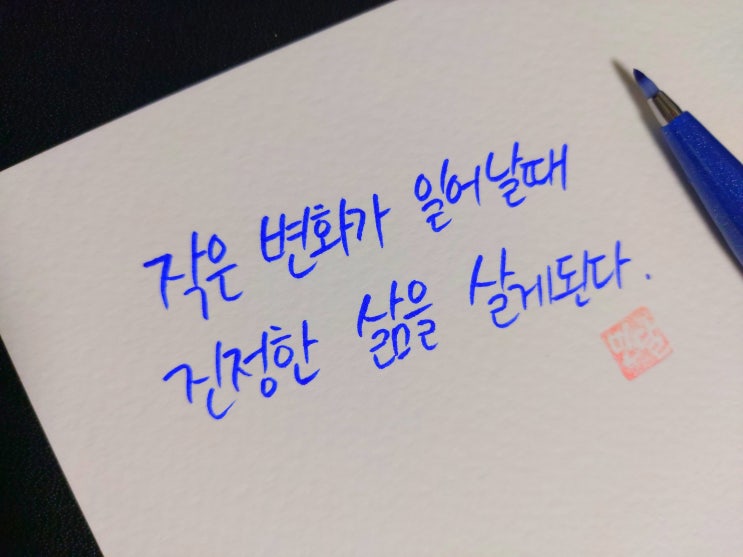 작은 변화가 일어날때
진정한 삶을 살게된다.